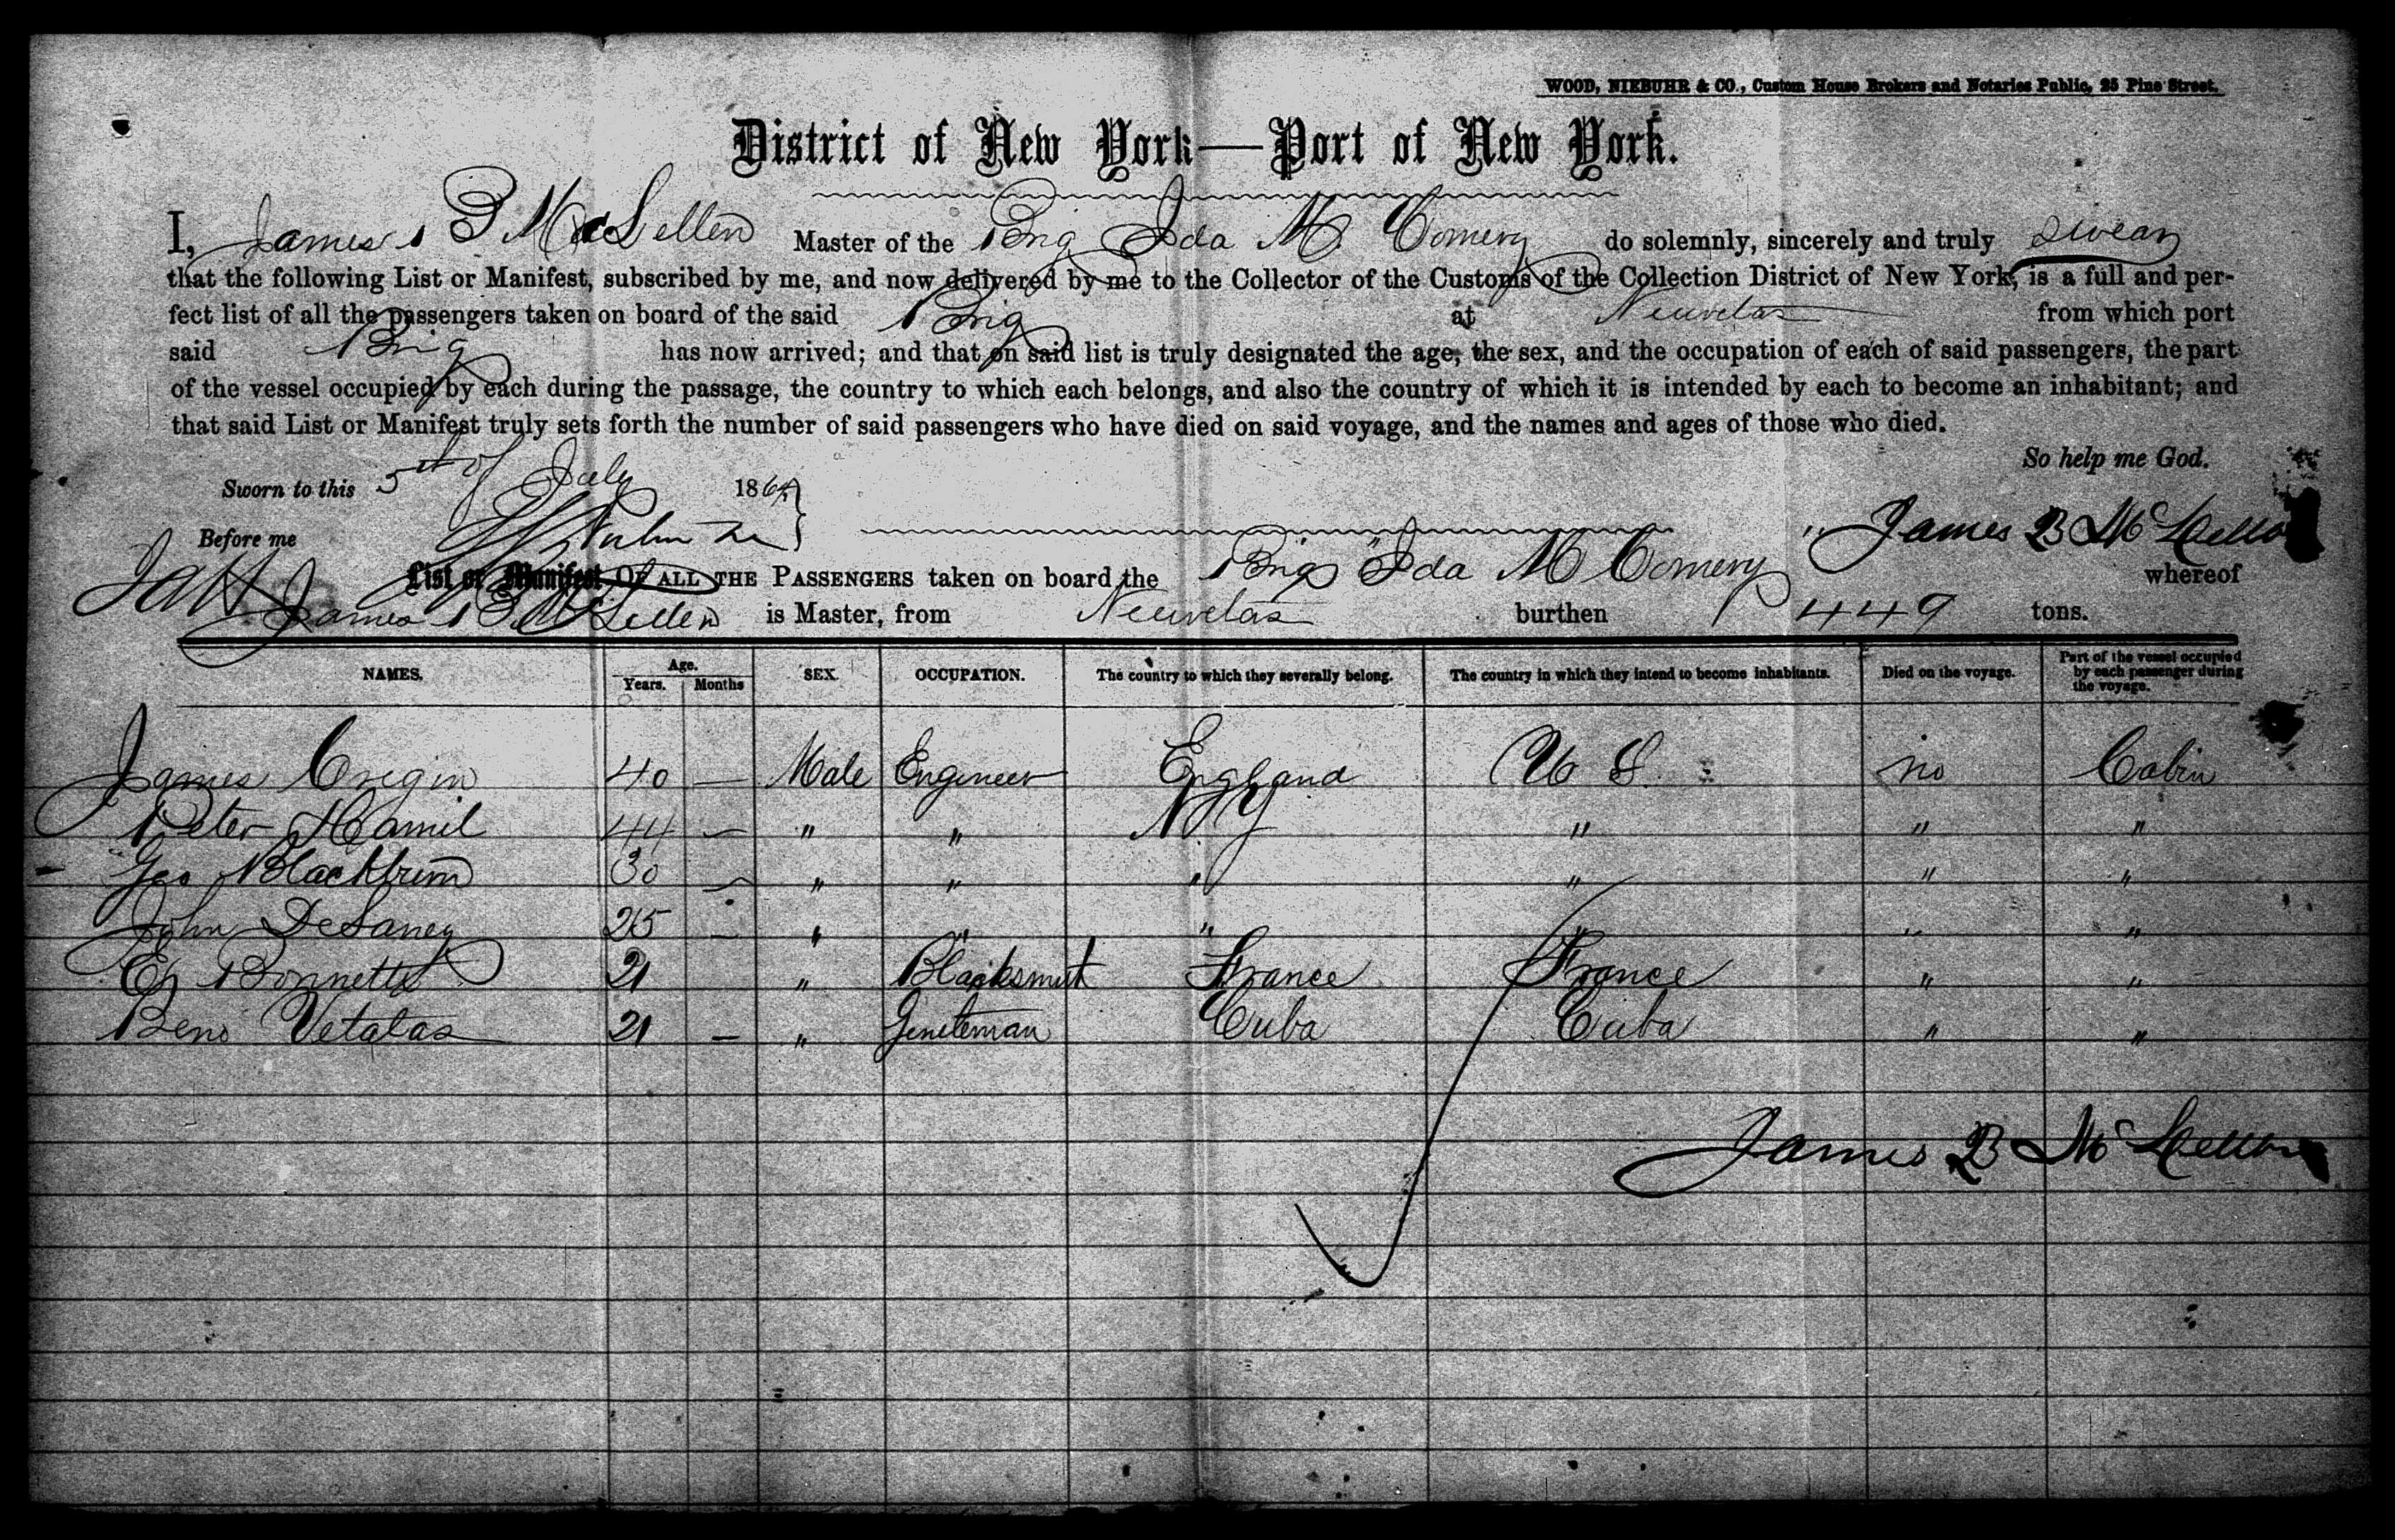 WOOD, NIEBUHR & CO., Custom House Brokers and Notaries Public, 25 Pine Street.
District of New York—Port of New York.
I, James B McLellen Master of the Brig Ida M. Comery do solemnly, sincerely and truly swear
that the following List or Manifest, subscribed by me, and now delivered by me to the Collector of the Customs of the Collection District of New York, is a full and per-
fect list of all the passengers taken on board of the said Brig at Neuvetas from which port
said Brig has now arrived; and that on said list is truly designated the age, the sex, and the occupation of each of said passengers, the part
of the vessel occupied by each during the passage, the country to which each belongs, and also the country of which it is intended by each to become an inhabitant; and
that said List or Manifest truly sets forth the number of said passengers who have died on said voyage, and the names and ages of those who died.
So help me God.
Sworn to this 5th of July 1864
Before me
James B McLellen
List or Manifest OF ALL THE PASSENGERS taken on board the Brig Ida M Comery whereof
James B McLellen is Master, from Neuvetas burthen 449 tons.
NAMES. Age. Years. Months SEX. OCCUPATION. The country to which they severally belong. The country in which they intend to become inhabitants. Died on the voyage. Part of the vessel occupied by each passenger during the voyage.
James Cregin 40 — Male Engineer England U S. no Cabin
Peter Hamil 44 — " " N Y " " "
Geo Blackburn 30 — " " " " " "
John DeLaney 25 — " " " " " "
Bonnett 21 " Blacksmith France France " "
Beno Vetalas 21 — " Genetleman Cuba Cuba " "
James B McLellen